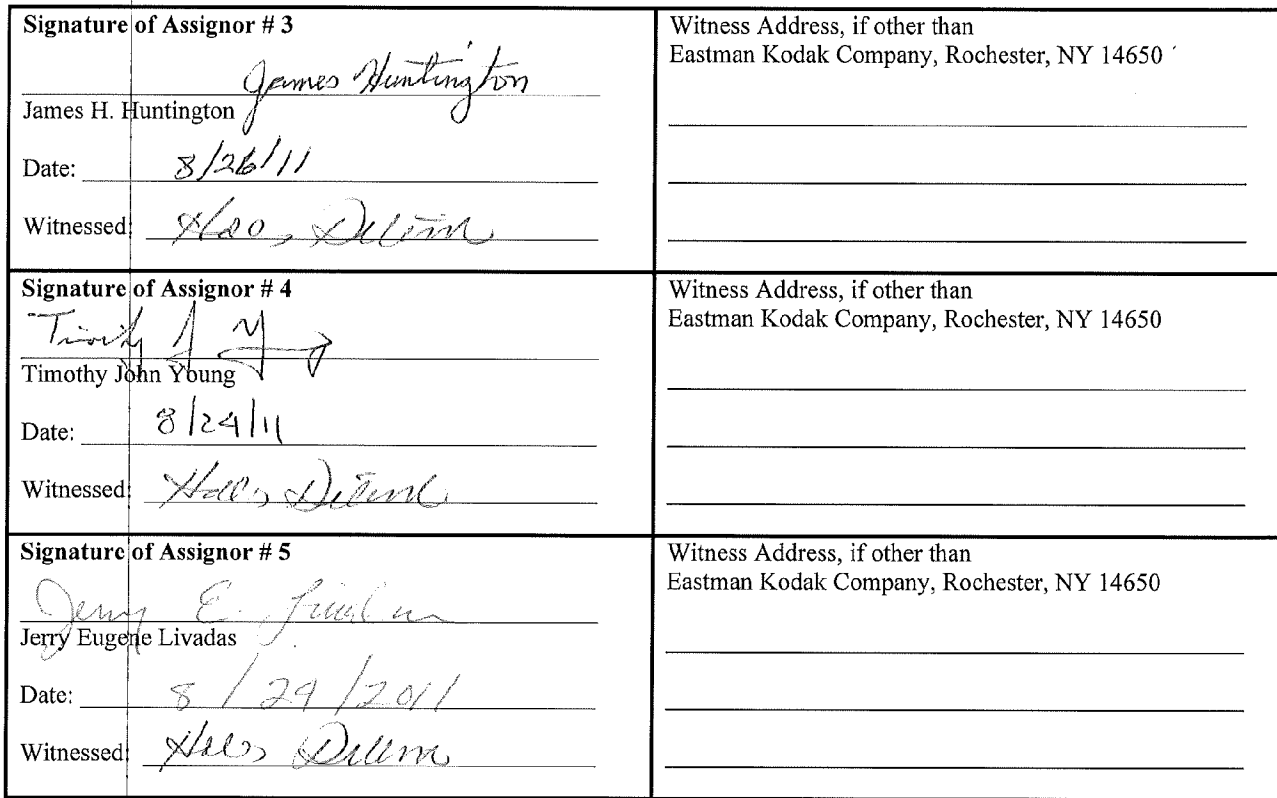 Signature of Assignor # 3
James Huntington
James H. Huntington
Date: 8/26/11
Witnessed:
Witness Address, if other than
Eastman Kodak Company, Rochester, NY 14650
Signature of Assignor # 4
Timothy J Y
Timothy John Young
Date: 8/24/11
Witnessed:
Witness Address, if other than
Eastman Kodak Company, Rochester, NY 14650
Signature of Assignor # 5
Jerry E. Livadas
Jerry Eugene Livadas
Date: 8/29/2011
Witnessed:
Witness Address, if other than
Eastman Kodak Company, Rochester, NY 14650